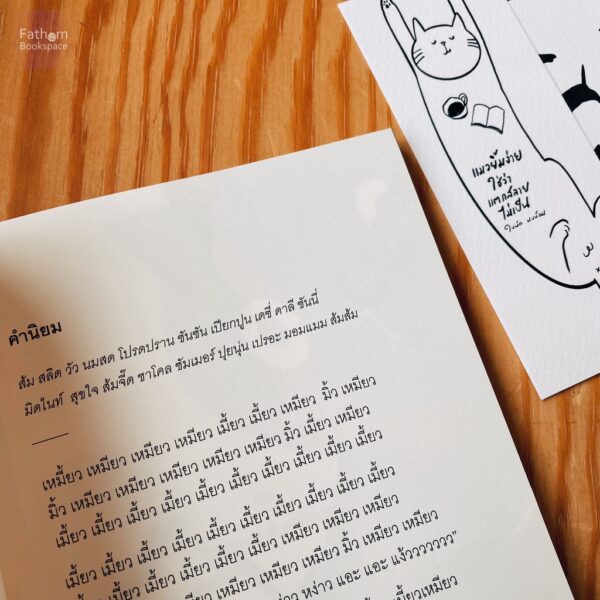 Fathom
Bookspace
แมวยิ้มง่าย
ใช่ว่า
แตกสลาย
ไม่เป็น
คำนิยม
ส้ม สลิด วัว นมสด โปรดปราน ซันซัน เปียกปูน เดซี่ ดาลี ซันนี่
มิดไนท์ สุขใจ ส้มจี๊ด ชาโคล ซัมเมอร์ ปุยนุ่น เปรอะ มอมแมม ส้มส้ม
เหมี้ยว เหมียว เหมียว เหมียว เมี้ยว เมี้ยว เหมียว มิ้ว เหมียว
มิ้ว เหมียว เหมียว เหมียว เหมียว เหมียว มิ้ว เมี้ยว เหมียว
เมี้ยว เมี้ยว เมี้ยว เมี้ยว เมี้ยว เมี้ยว เมี้ยว เมี้ยว เมี้ยว
เมี้ยว เมี้ยว เมี้ยว เมี้ยว เมี้ยว เมี้ยว เมี้ยว เมี้ยว เมี้ยว
เมี้ยว เมี้ยว เมี้ยว เมี้ยว เมี้ยว เมี้ยว เหมียว เหมียว เหมียว
เหมียว เหมียว เหมียว มิ้ว เหมียว เหมียว
หง่าว แอะ แอะ แง้วววววววว”
เหมียว